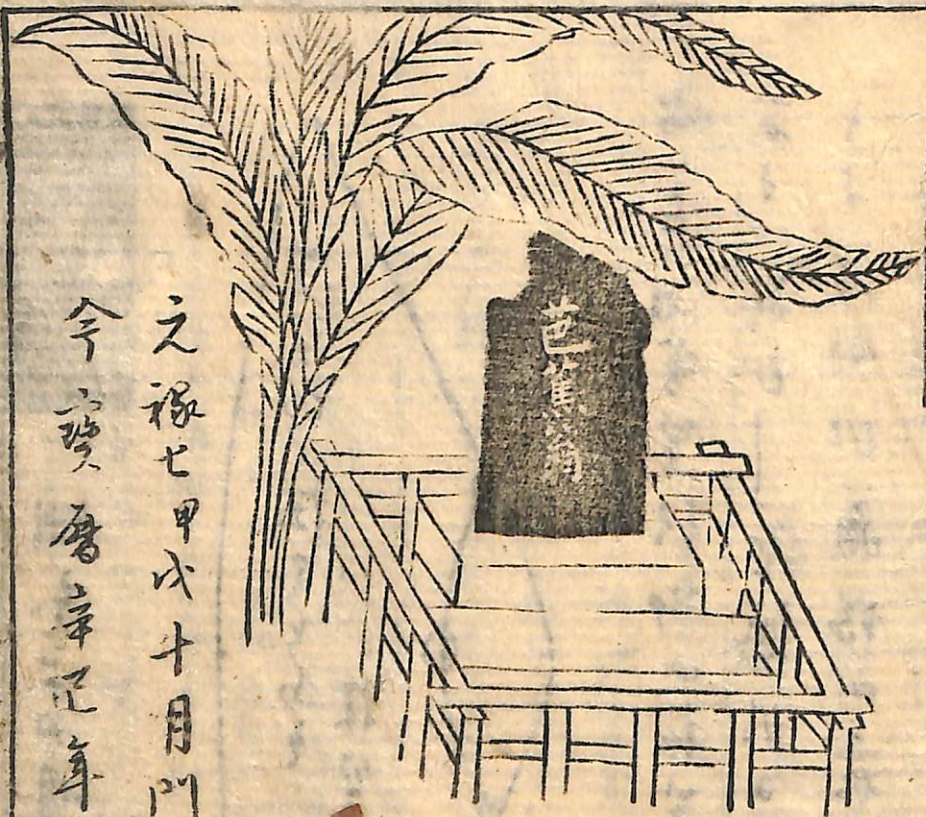 芭蕉翁
元禄七甲戌十月門
今寶曆辛巳年